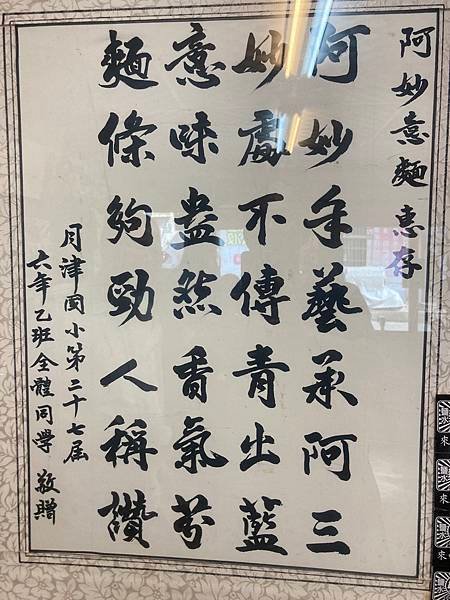 阿妙意麵 惠存
阿妙手藝承阿三
妙處不傳青出藍
意味盎然香氣芬
麵條夠勁人稱讚
月津国小第二十七屆
六年乙班全體同學 敬贈
鹽水
來
鹽水
來
鹽水
來